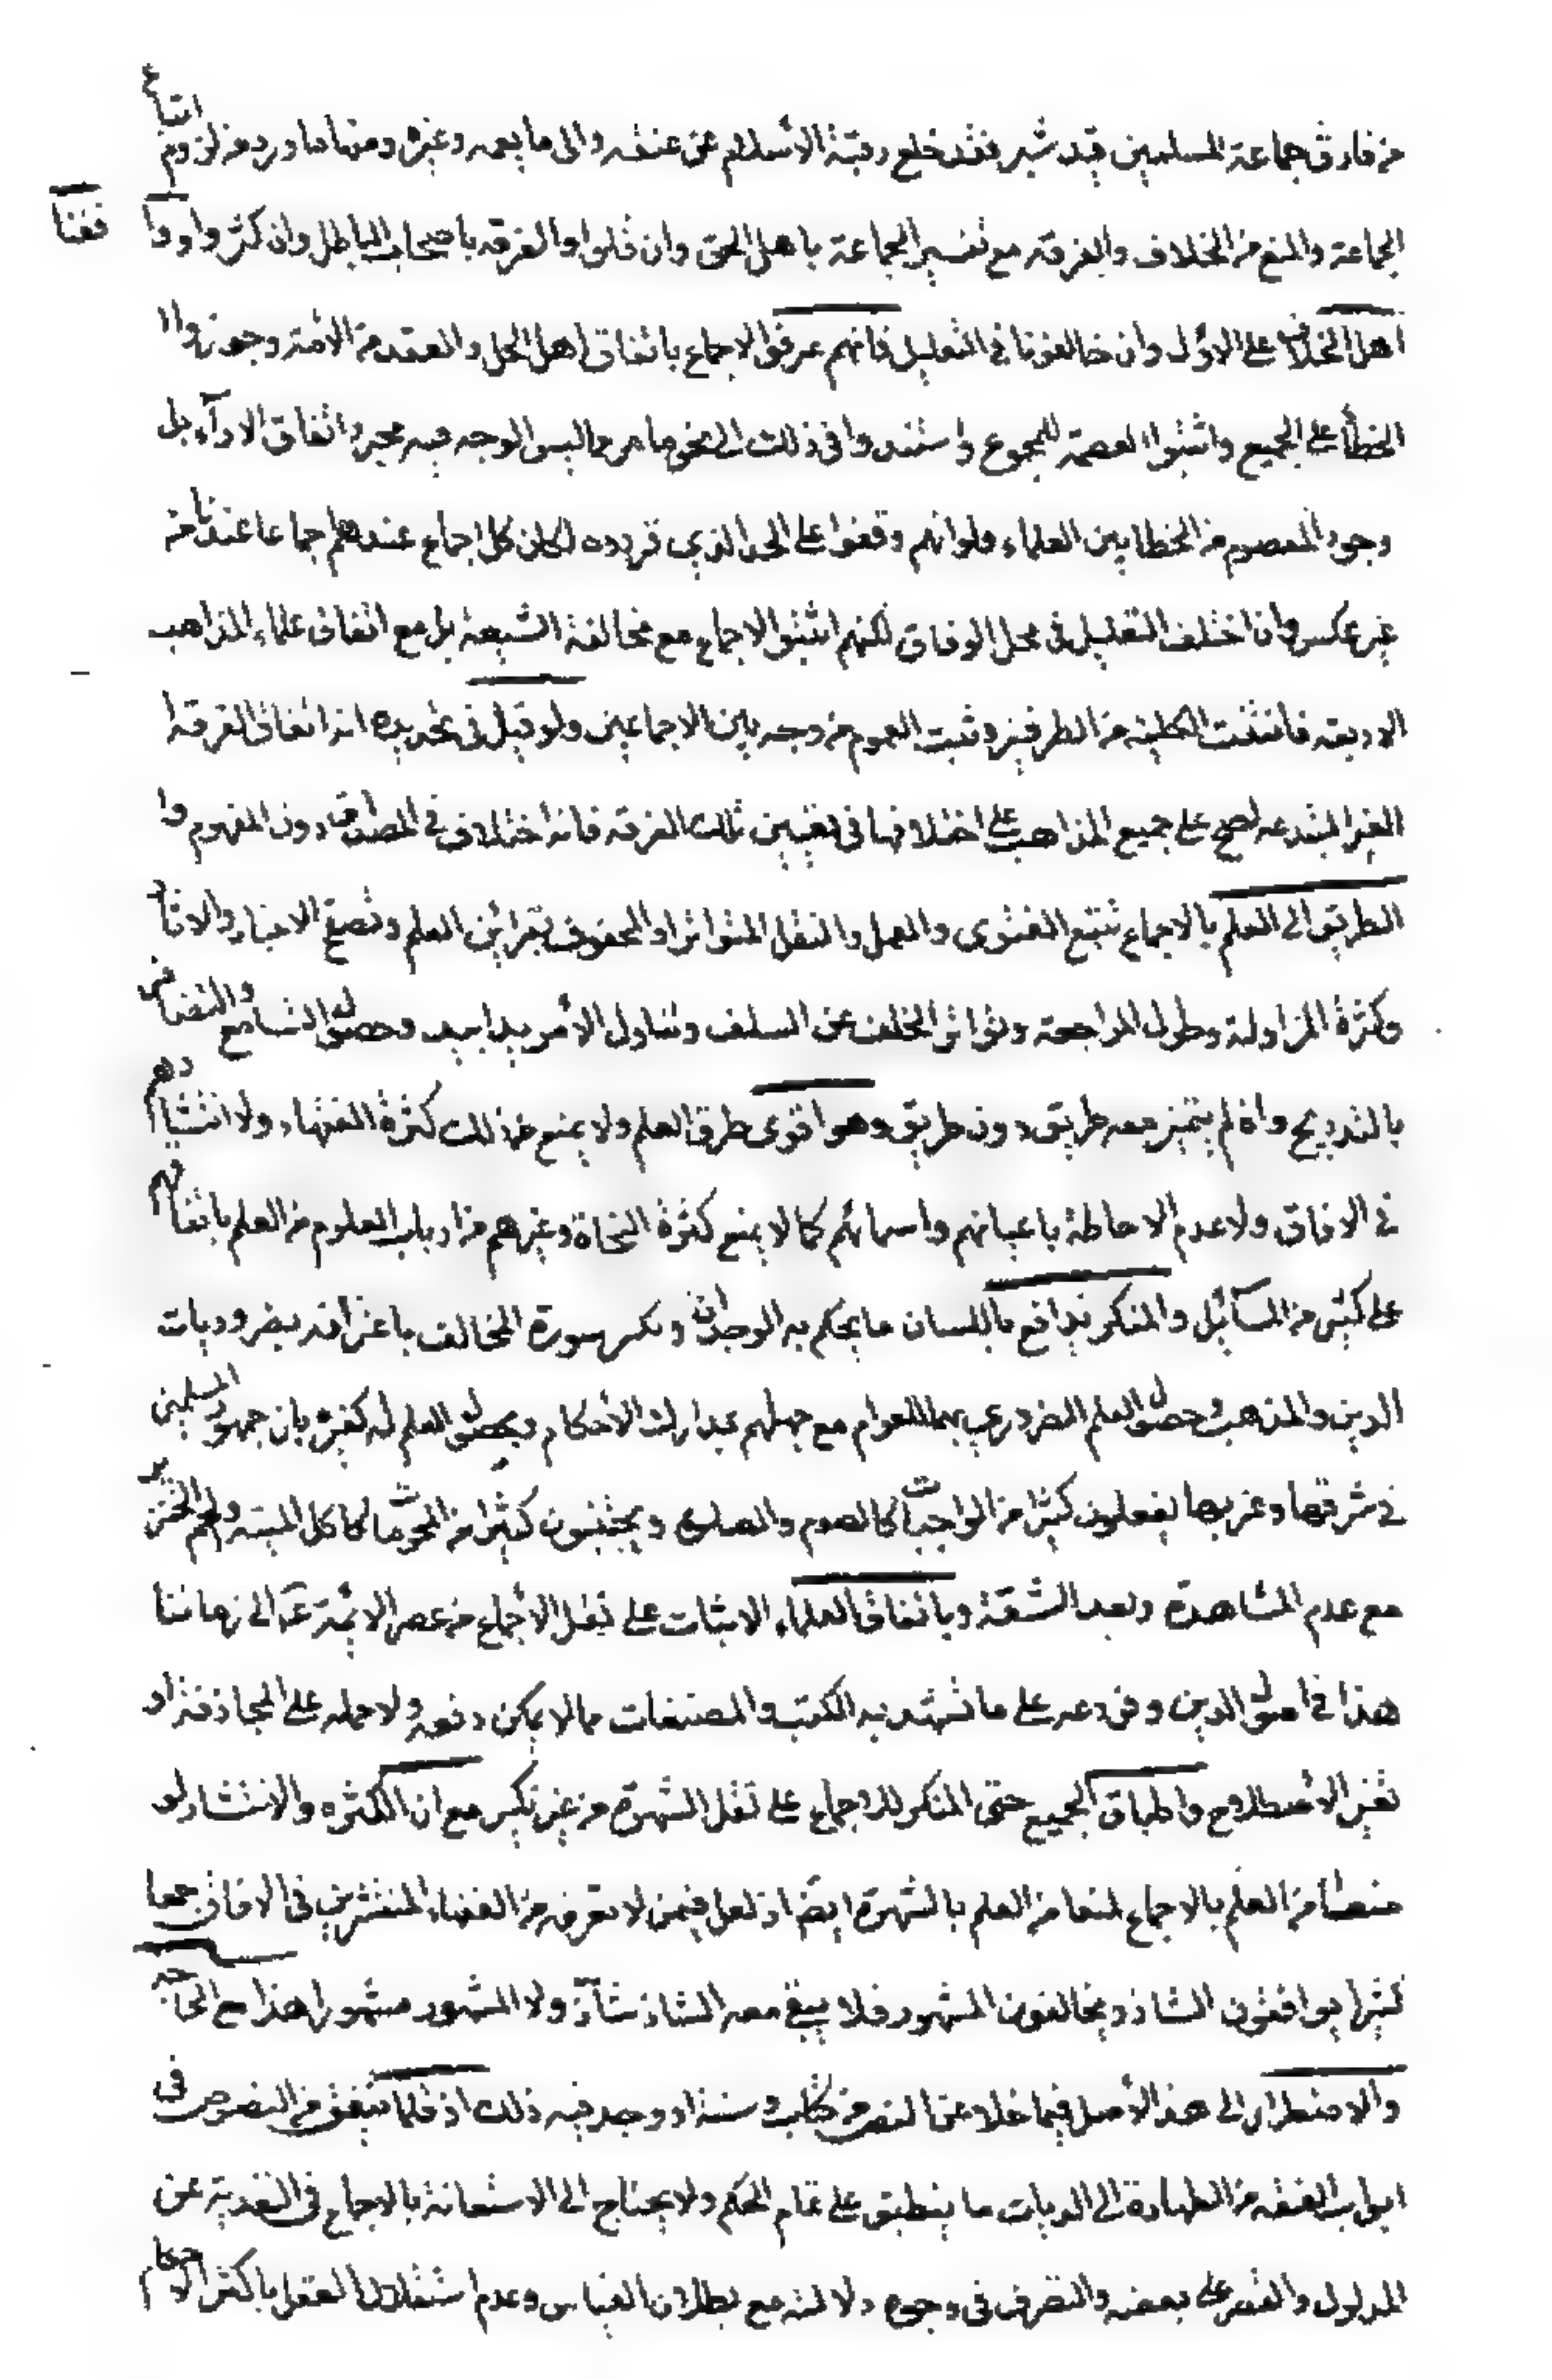 من فارق جماعة المسلمين قيد شبر فقد خلع ربقة الأسلام عن عنقه والى ما يعمه وغيره ومنها ما ورد من لزوم اتباع
الجماعة والمنع من الخلاف والفرقة مع تفسير الجماعة باهل الحق وان قلوا والفرقه باصحاب الباطل وان كثروا ووا
فقنا
اهل الخلاف على الاول وان خالفونا في التعليل فانهم عرفوا الاجماع باتفاق اهل الحل والعقد من الامة وجوزوا ا
الخطأ على الجميع واثبتوا العصمة للمجموع واستندوا في ذلك الى نحو ما مر مما ليس الوجه فيه مجرد اتفاق الاراء بل
وجود المعصوم من الخطا بين العلماء ولو انهم وقفوا على الحد الذي قرروه لكان كل اجماع عندهم اجماعا عندنا من
غير عكس وان اختلف التعليل في محل الوفاق لكنهم اثبتوا الاجماع مع مخالفة الشيعة بل مع اتفاق علماء المذاهب
الاربعة فانتفت الكلية من الطرفين وثبت العموم من وجه بين الاجماعين ولو قيل في تحديده انه اتفاق الفرقة ا
الغير المبتدعه لصح على جميع المذاهب على اختلافها في تعيين تلك الفرقه فانه اختلاف في المصداق دون المفهوم وا
الطريق الى العلم بالاجماع تتبع الفتوى والعمل والنقل المتواتر او المحفوف بقرائن العلم وتصفح الاخبار والاثار
وكثرة المزاولة وطول المراجعة وتواتر الخلف عن السلف وتناول الأمر يدا بيد وحصول التسامع والتضافر
بالتدريج وان لم يتميز معه طريق دون طريق وهو اقوى طرق العلم ولا يمنع من ذلك كثرة الفقهاء ولا انتشارهم
في الافاق ولا عدم الاحاطة باعيانهم واسمائهم كما لا يمنع كثرة النحاة وغيرهم من ارباب العلوم من العلم باتفاقهم
على كثير من المسائل والمنكر يدافع باللسان ما يحكم به الوجدان ونكسر سورة المخالف باعترافه بضروريات
الدين والمذهب وحصول العلم الضروري بهما للعوام مع جهلهم بمدارك الأحكام وبحصول العلم له كغيره بان جمهور المسلمين
في شرقها وغربها يفعلون كثيرا من الواجبات كالصوم والصلوة ويجتنبون كثيرا من المحرمات كاكل الميتة ولحم الخنزير
مع عدم المشاهدة وبعد الشقة وباتفاق العلماء الاثبات على نقل الأجماع من عصر الائمة ع الى زماننا
هذا في اصول الدين وفروعه على ما تشهد به الكتب والمصنفات مما لا يمكن دفعه ولا حمله على المجاز فرارا
تغير الأصطلاح واطباق الجميع حتى المنكر للاجماع على نقل الشهرة من غير نكير مع ان الكثره والانتشار لو
منعتا من العلم بالاجماع لمنعا من العلم بالشهرة ايضا اذ لعل فيمن لا تعرفه من الفقهاء المنتشرين في الافاق جمعا
كثيرا يوافقون الشاذ ويخالفون المشهور فلا يبقى معه الشاذ شاذا ولا المشهور مشهورا هذا مع الحاجة
والاضطرار الى هذا الأصل فيما خلا عن النص من كتاب وسنة او وجد فيه ذلك اذ قلما يتفق من النصوص في
ابواب الفقه من الطهارة الى الديات ما ينطبق على تمام الحكم ولا يحتاج الى الاستعانة بالاجماع في التعدية عن
المدلول والقصر على بعضه والتصرف في وجوه دلالته مع بطلان القياس وعدم استقلال العقل باكثر الاحكام